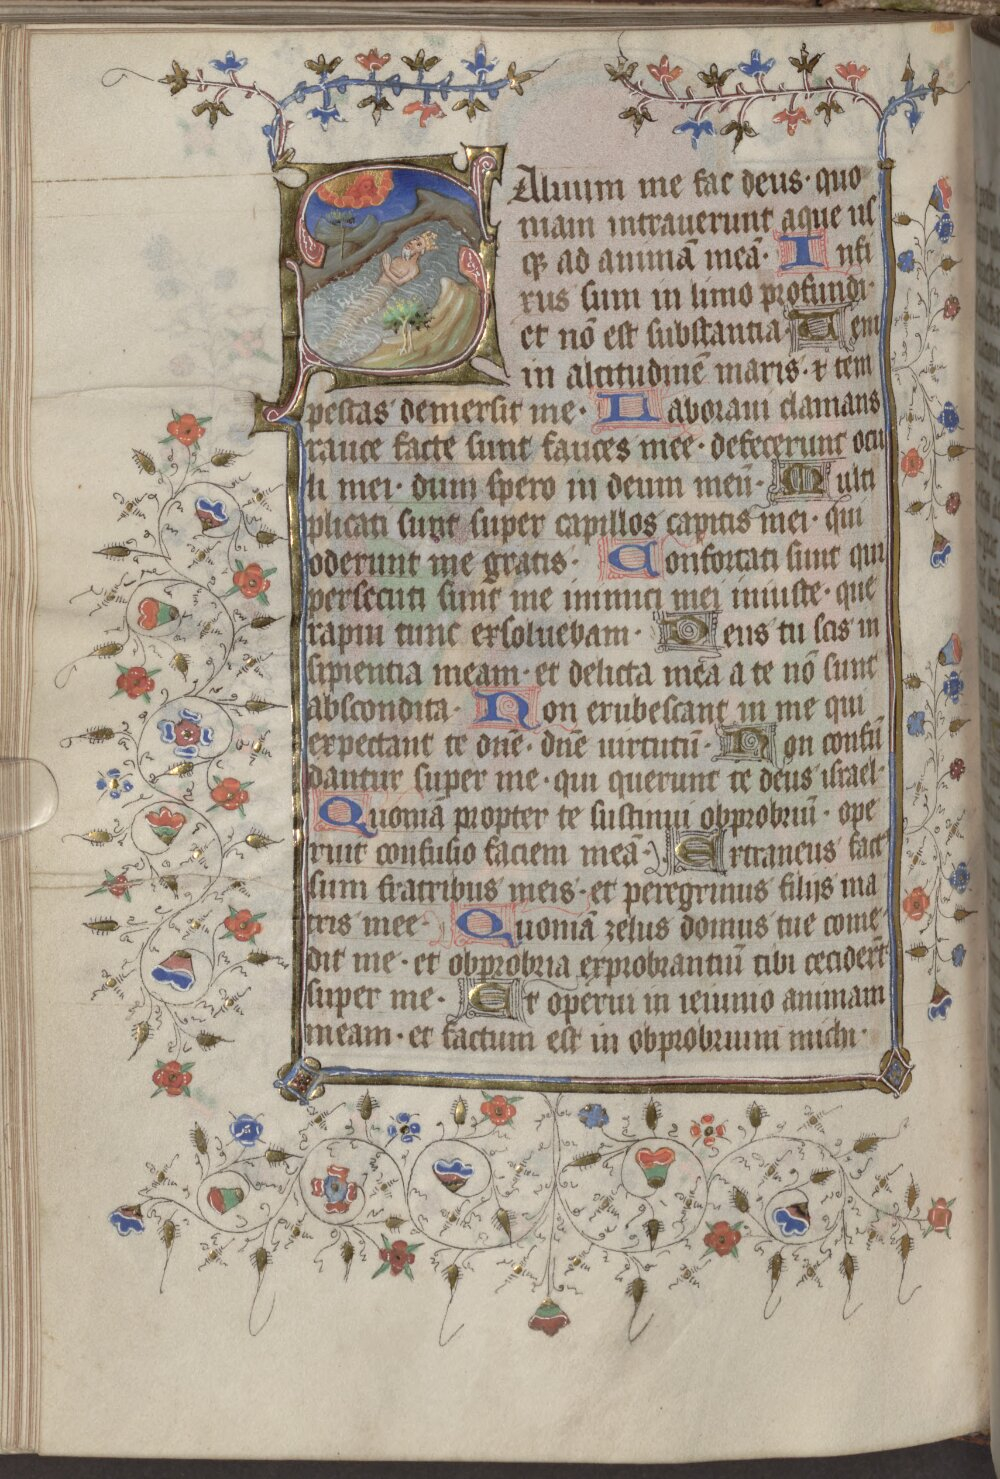 Saluum me fac deus· quo
niam intrauerunt aque us
q̃ ad animā meā· Infi
xus sum in limo profundi·
et nō est substantia· Ueni
in altitudinē maris· ⁊ tem
pestas demersit me· Laboraui clamans
rauce facte sunt fauces mee· defecerunt ocu
li mei· dum spero in deum meū· Multi
plicati sunt super capillos capitis mei· qui
oderunt me gratis· Confortati sunt qui
persecuti sunt me inimici mei iniuste· que
rapui tunc exsoluebam· Deus tu scis in
sipientia meam· et delicta mea a te nō sunt
abscondita· Non erubescant in me qui
expectant te dn̄e· dn̄e uirtutū· Non confū
dantur super me· qui querunt te deus israel·
Quoniā propter te sustinui obprobriū· ope
ruit confusio faciem meā· Extraneus fact
sum fratribus meis· et peregrinus filijs ma
tris mee· Quoniā zelus domus tue come
dit me· et obprobria exprobrantiū tibi cecider̄t
super me· Et operui in ieiunio animam
meam· et factum est in obprobrium michi·